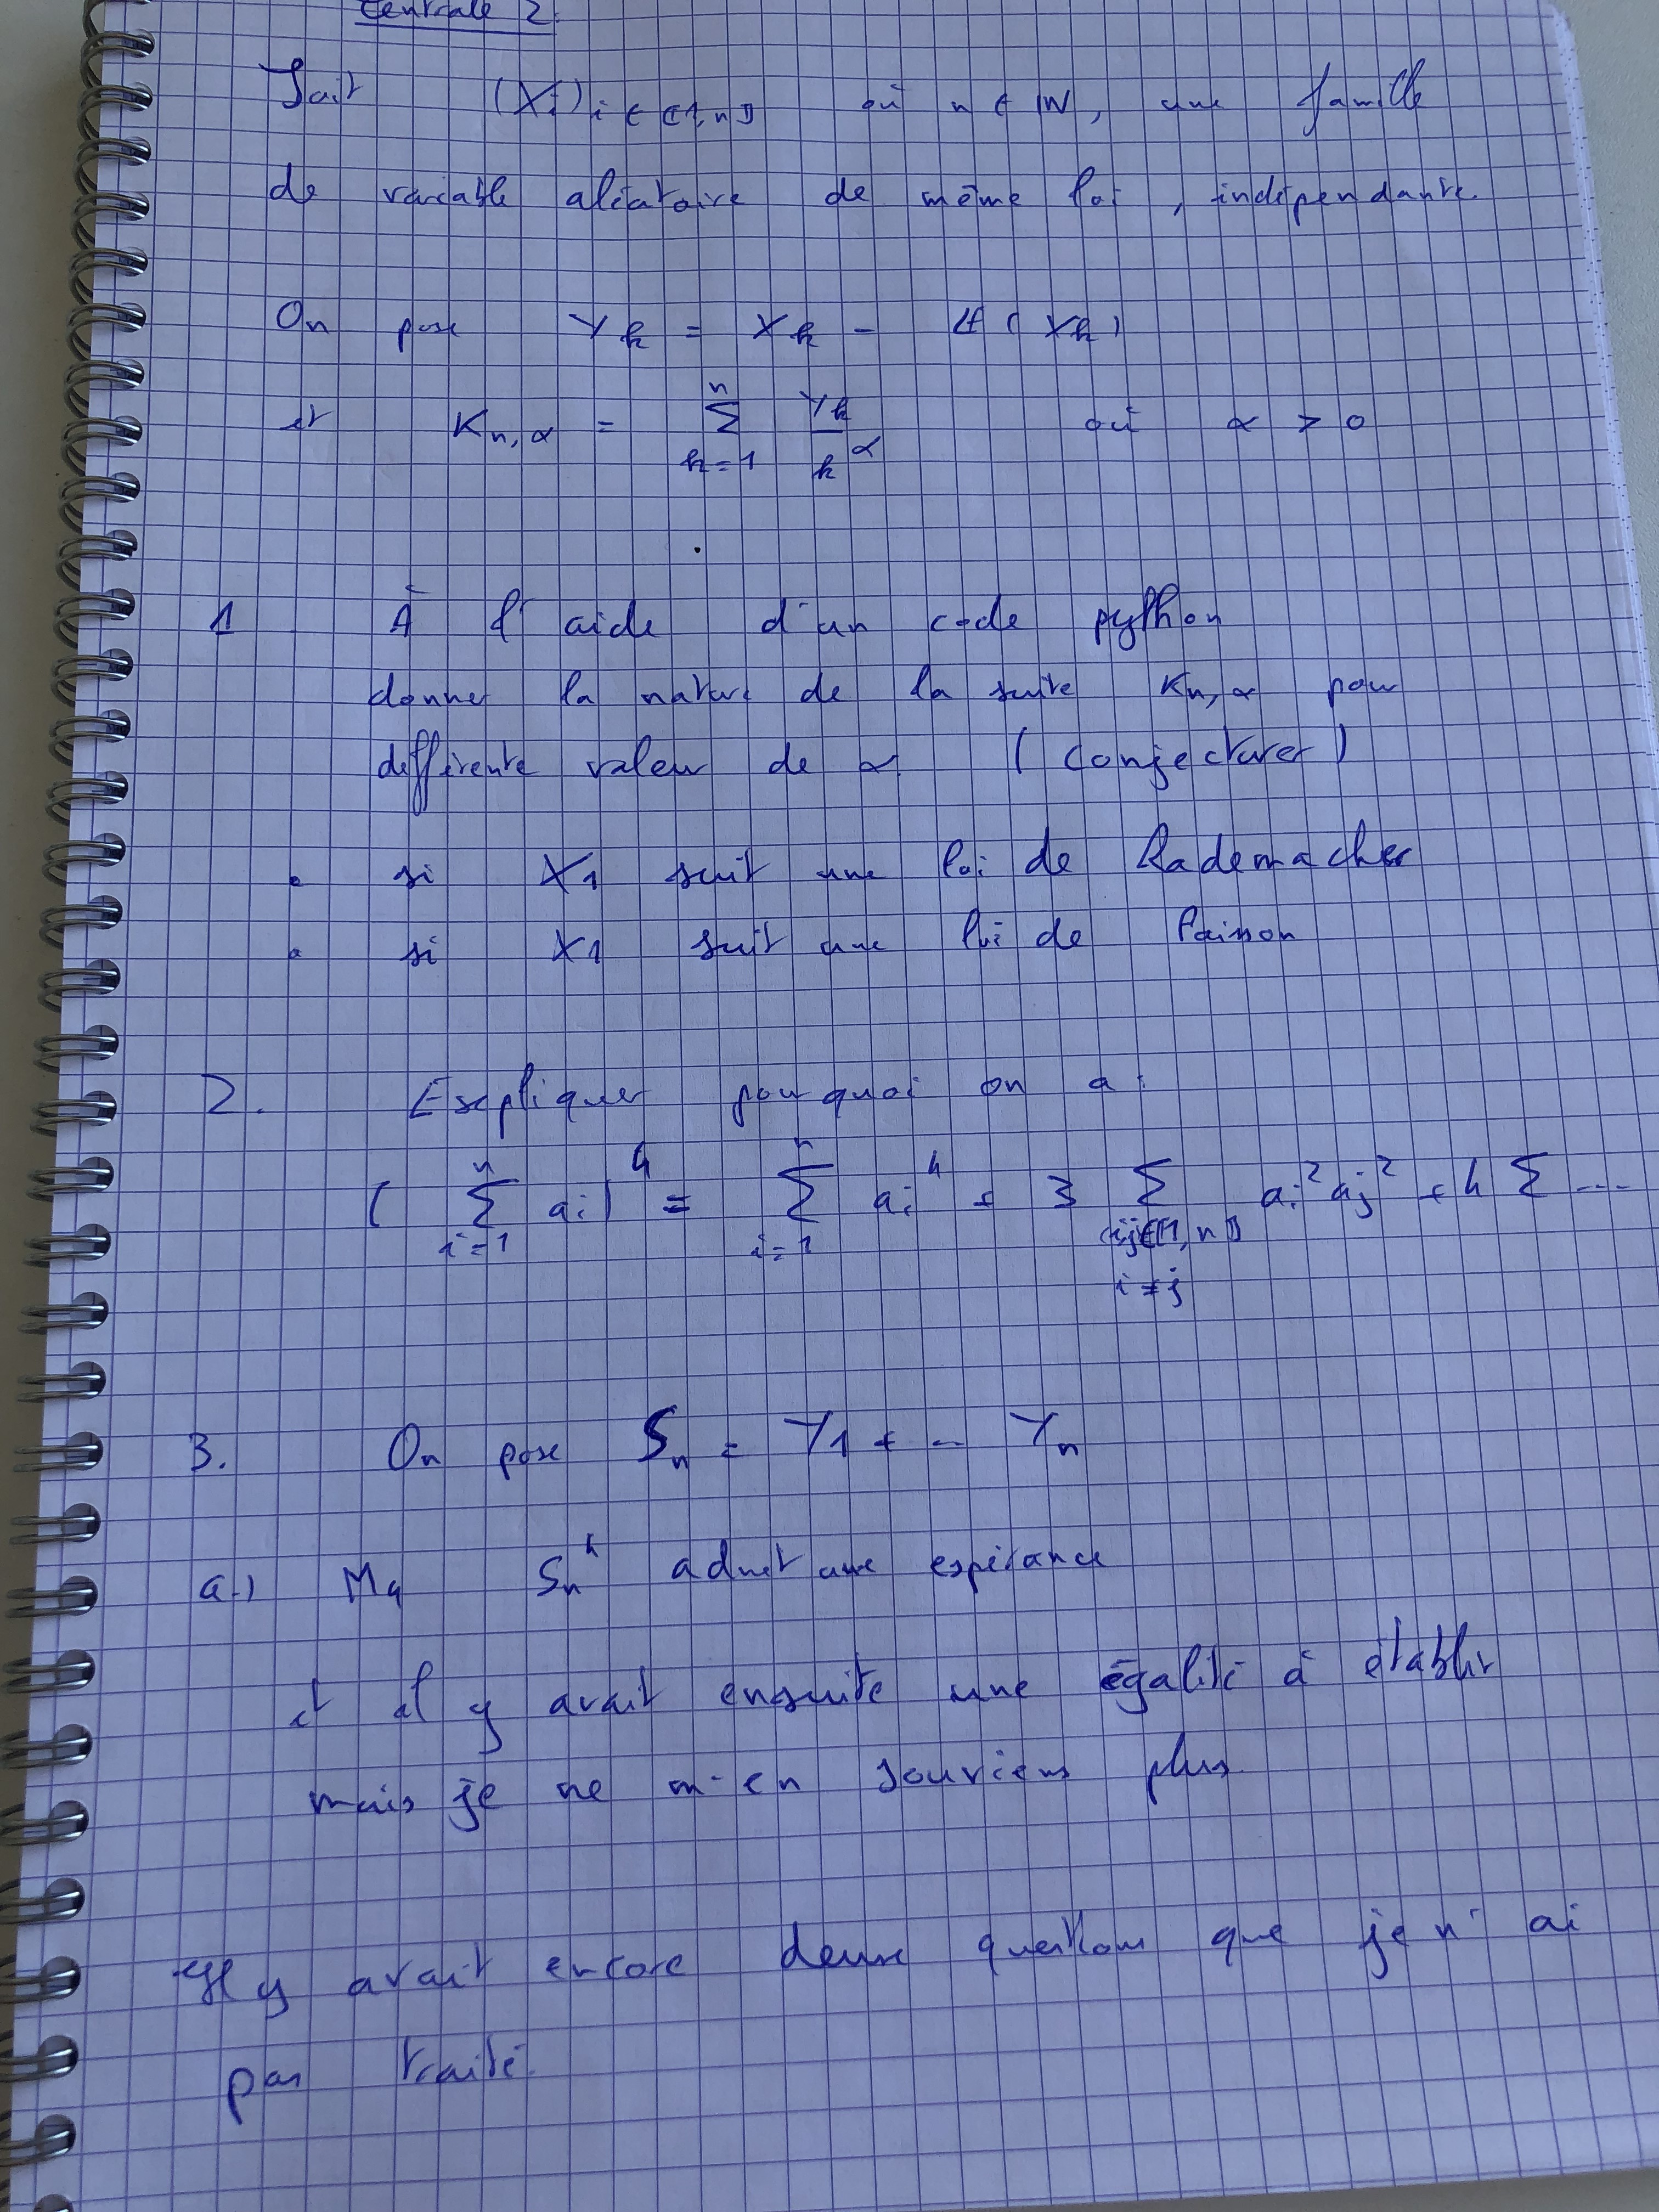 Centrale 2.
Soit (Xi) i ∈ ⟦1,n⟧ où n ∈ ℕ, une famille
de variable aléatoire de même loi, indépendante.
On pose Yk = Xk - E(Xk)
et Kn,α = Σ_{k=1}^{n} Yk / k^α où α > 0
1 À l'aide d'un code python
donner la nature de la suite Kn,α pour
différente valeur de α (conjecturer)
• si X1 suit une loi de Rademacher
• si X1 suit une loi de Poisson
2. Expliquer pourquoi on a :
( Σ_{i=1}^{n} ai )^4 = Σ_{i=1}^{n} ai^4 + 3 Σ_{i,j∈⟦1,n⟧ i≠j} ai² aj² + 4 Σ ...
3. On pose Sn = Y1 + -- Yn
a-) Mq Sn^4 admet une espérance
et il y avait ensuite une égalité à établir
mais je ne m'en souviens plus.
Il y avait encore deux questions que je n'ai
pas traité.